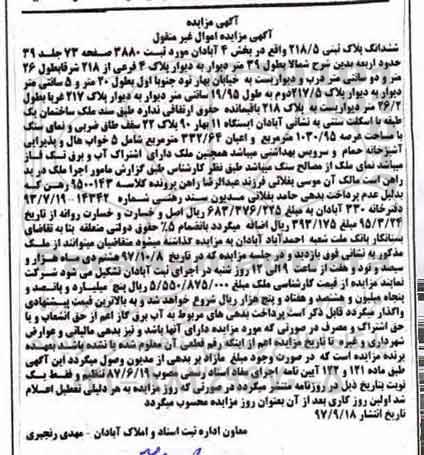 آگهی مزایده
آگهی مزایده اموال غیر منقول
ششدانگ پلاک ثبتی ۲۱۸/۵ واقع در بخش ۴ آبادان مورد ثبت ۳۸۸۰ صفحه ۷۳ جلد ۳۹
حدود اربعه بدین شرح شمالا بطول ۳۹ متر دیوار به دیوار پلاک ۴ فرعی از ۲۱۸ شرقابطول ۲۶
متر و دو سانتی متر درب و دیواریست به خیابان بهار نود جنوبا اول بطول ۲۰ متر و ۵ سانتی متر
دیوار به دیوار پلاک ۲۱۷/۵دوم به طول ۱۹/۹۵ سانتی متر دیوار به دیوار پلاک ۲۱۷ غربا بطول
۲۶/۲ متر دیواریست به پلاک ۲۱۸ باقیمانده حقوق ارتفاقی ندارد طبق سند ملک ساختمان یک
طبقه با اسکلت سنتی به نشانی آبادان ایستگاه ۱۱ بهار ۹۰ پلاک ۲۲ سقف طاق ضربی و نمای سنگ
با مساحت عرصه ۱۰۳۰/۹۵ مترمربع و اعیان ۳۳۲/۶۴ مترمربع شامل ۵ خواب هال و پذیرایی
آشپزخانه حمام و سرویس بهداشتی میباشد همچنین ملک دارای اشتراک آب و برق تک فاز
میباشد نمای ملک از مصالح سنگ میباشد طبق نظر کارشناس طبق گزارش مامور اجرا ملک در ید
راهن است مالک آن موسی بغلانی فرزند عبدالرضا راهن پرونده کلاسه ۹۵۰۰۱۴۳ رهن که
بدلیل عدم پرداخت بدهی حامد بغلانی مدیون سند رهنی شماره ۱۴۳۴۲ - ۹۳/۷/۱۹
دفترخانه ۳۳۰ آبادان به مبلغ ۶۸۳/۳۷۶/۲۲۵ ریال اصل و خسارت و خسارت روزانه از تاریخ
۹۵/۳/۲۲ مبلغ ۳۹۳/۱۷۵ ریال اضافه میگردد بانضمام ۵٪ حقوق دولتی متعلقه بنا به تقاضای
بستانکار بانک ملت شعبه احمدآباد آبادان به مزایده گذاشته میشود متقاضیان میتوانند از ملک
مذکور به نشانی فوق بازدید و در جلسه مزایده که در تاریخ ۹۷/۱۰/۸ هشتم دی ماه هزار و
سیصد و نود و هفت از ساعت ۹ الی ۱۲ روز شنبه در اجرای ثبت آبادان تشکیل می شود شرکت
نمایند مزایده از قیمت کارشناسی ملک مبلغ ۵/۵۵۰/۸۷۵/۰۰۰ ریال پنج میلیارد و پانصد و
پنجاه میلیون و هشتصد و هفتاد و پنج هزار ریال شروع خواهد شد و به بالاترین قیمت پیشنهادی
واگذار میگردد قابل ذکر است پرداخت بدهی های مربوط به آب برق گاز اعم از حق انشعاب و یا
حق اشتراک و مصرف در صورتی که مورد مزایده دارای آنها باشد و نیز بدهی مالیاتی و عوارض
شهرداری و غیره تا تاریخ مزایده اعم از اینکه رقم قطعی آن معلوم شده یا نشده باشد بعهده
برنده مزایده است که در صورت وجود مبلغ مازاد بر بدهی از مدیون وصول میگردد این آگهی
طبق ماده ۱۲۱ و ۱۲۲ آیین نامه اجرای مفاد اسناد رسمی مصوب ۸۷/۶/۱۹ تنظیم و فقط یک
نوبت بتاریخ ذیل در روزنامه منتشر میگردد در صورتی که روز مزایده به هر دلیلی تعطیل اعلام
شد اولین روز کاری بعد از آن بعنوان روز مزایده محسوب میگردد
تاریخ انتشار ۹۷/۹/۱۸
معاون اداره ثبت اسناد و املاک آبادان - مهدی رنجبری